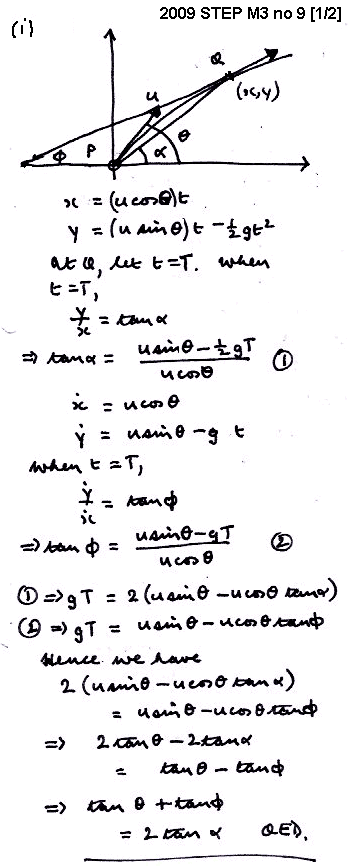 2009 STEP M3 no 9 [1/2]
(i)
u
Q
(x,y)
φ
P
θ
α
x = (u cosθ)t
y = (u sinθ)t − ½gt²
At Q, let t = T. When
t = T,
y/x = tanα
⇒ tanα = (u sinθ − ½gT)/(u cosθ) ①
ẋ = u cosθ
ẏ = u sinθ − g t
When t = T,
ẏ/ẋ = tanφ
⇒ tanφ = (u sinθ − gT)/(u cosθ) ②
① ⇒ gT = 2(u sinθ − u cosθ tanα)
② ⇒ gT = u sinθ − u cosθ tanφ
Hence we have
2(u sinθ − u cosθ tanα)
= u sinθ − u cosθ tanφ
⇒ 2tanθ − 2tanα
= tanθ − tanφ
⇒ tanθ + tanφ
= 2 tanα QED.